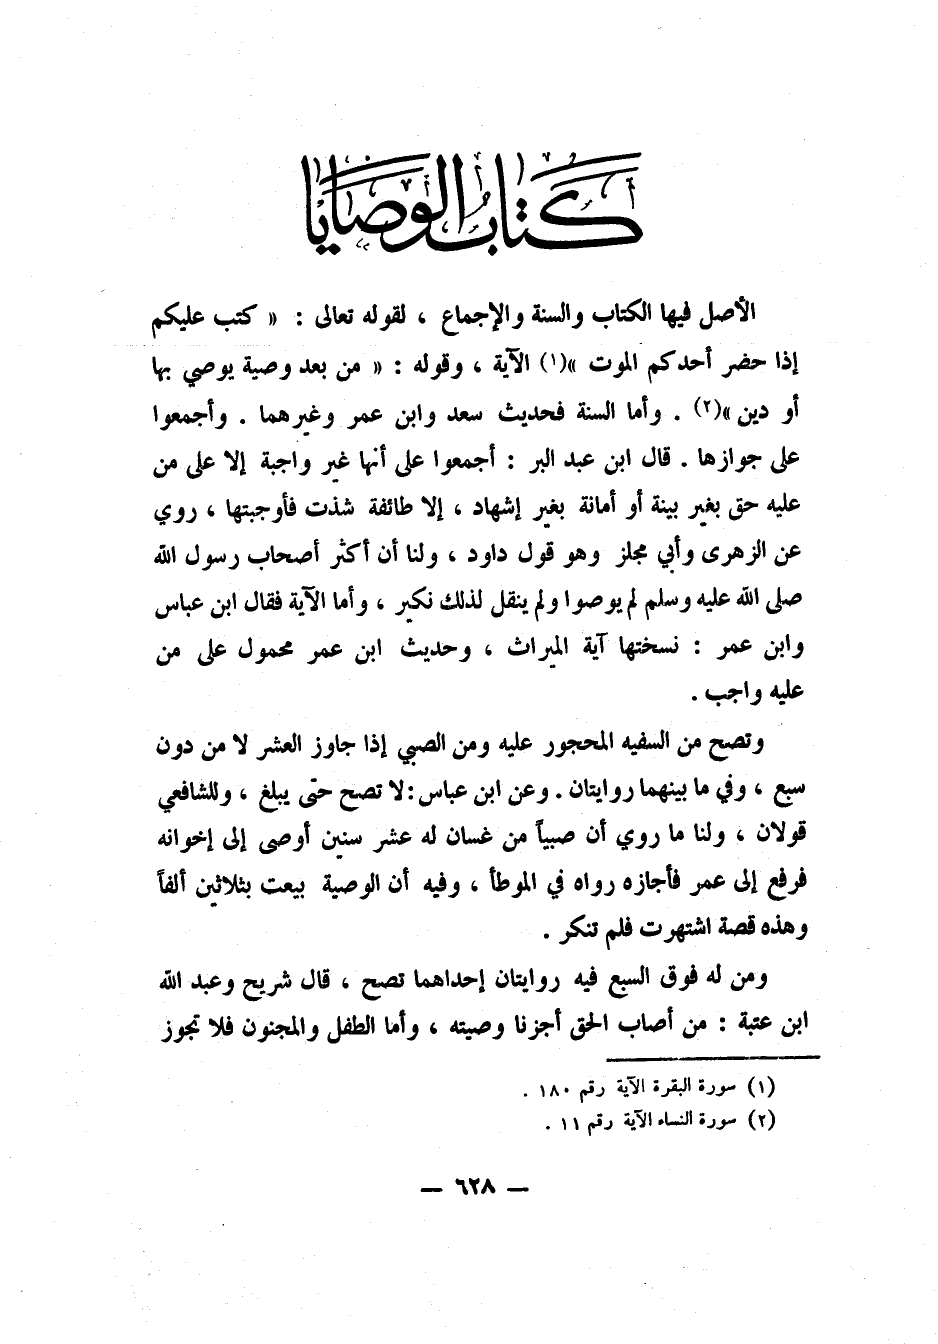 كتاب الوصايا
الأصل فيها الكتاب والسنة والإجماع ، لقوله تعالى : « كتب عليكم
إذا حضر أحدكم الموت »(١) الآية ، وقوله : « من بعد وصية يوصي بها
أو دين »(٢) . وأما السنة فحديث سعد وابن عمر وغيرهما . وأجمعوا
على جوازها . قال ابن عبد البر : أجمعوا على أنها غير واجبة إلا على من
عليه حق بغير بينة أو أمانة بغير إشهاد ، إلا طائفة شذت فأوجبتها ، روي
عن الزهرى وأبي مجلز وهو قول داود ، ولنا أن أكثر أصحاب رسول الله
صلى الله عليه وسلم لم يوصوا ولم ينقل لذلك نكير ، وأما الآية فقال ابن عباس
وابن عمر : نسختها آية الميراث ، وحديث ابن عمر محمول على من
عليه واجب .
وتصح من السفيه المحجور عليه ومن الصبي إذا جاوز العشر لا من دون
سبع ، وفي ما بينهما روايتان . وعن ابن عباس : لا تصح حتى يبلغ ، وللشافعي
قولان ، ولنا ما روي أن صبياً من غسان له عشر سنين أوصى إلى إخوانه
فرفع إلى عمر فأجازه رواه في الموطأ ، وفيه أن الوصية بيعت بثلاثين ألفاً
وهذه قصة اشتهرت فلم تنكر .
ومن له فوق السبع فيه روايتان إحداهما تصح ، قال شريح وعبد الله
ابن عتبة : من أصاب الحق أجزنا وصيته ، وأما الطفل والمجنون فلا تجوز
(١) سورة البقرة الآية رقم ١٨٠ .
(٢) سورة النساء الآية رقم ١١ .
— ٦٢٨ —